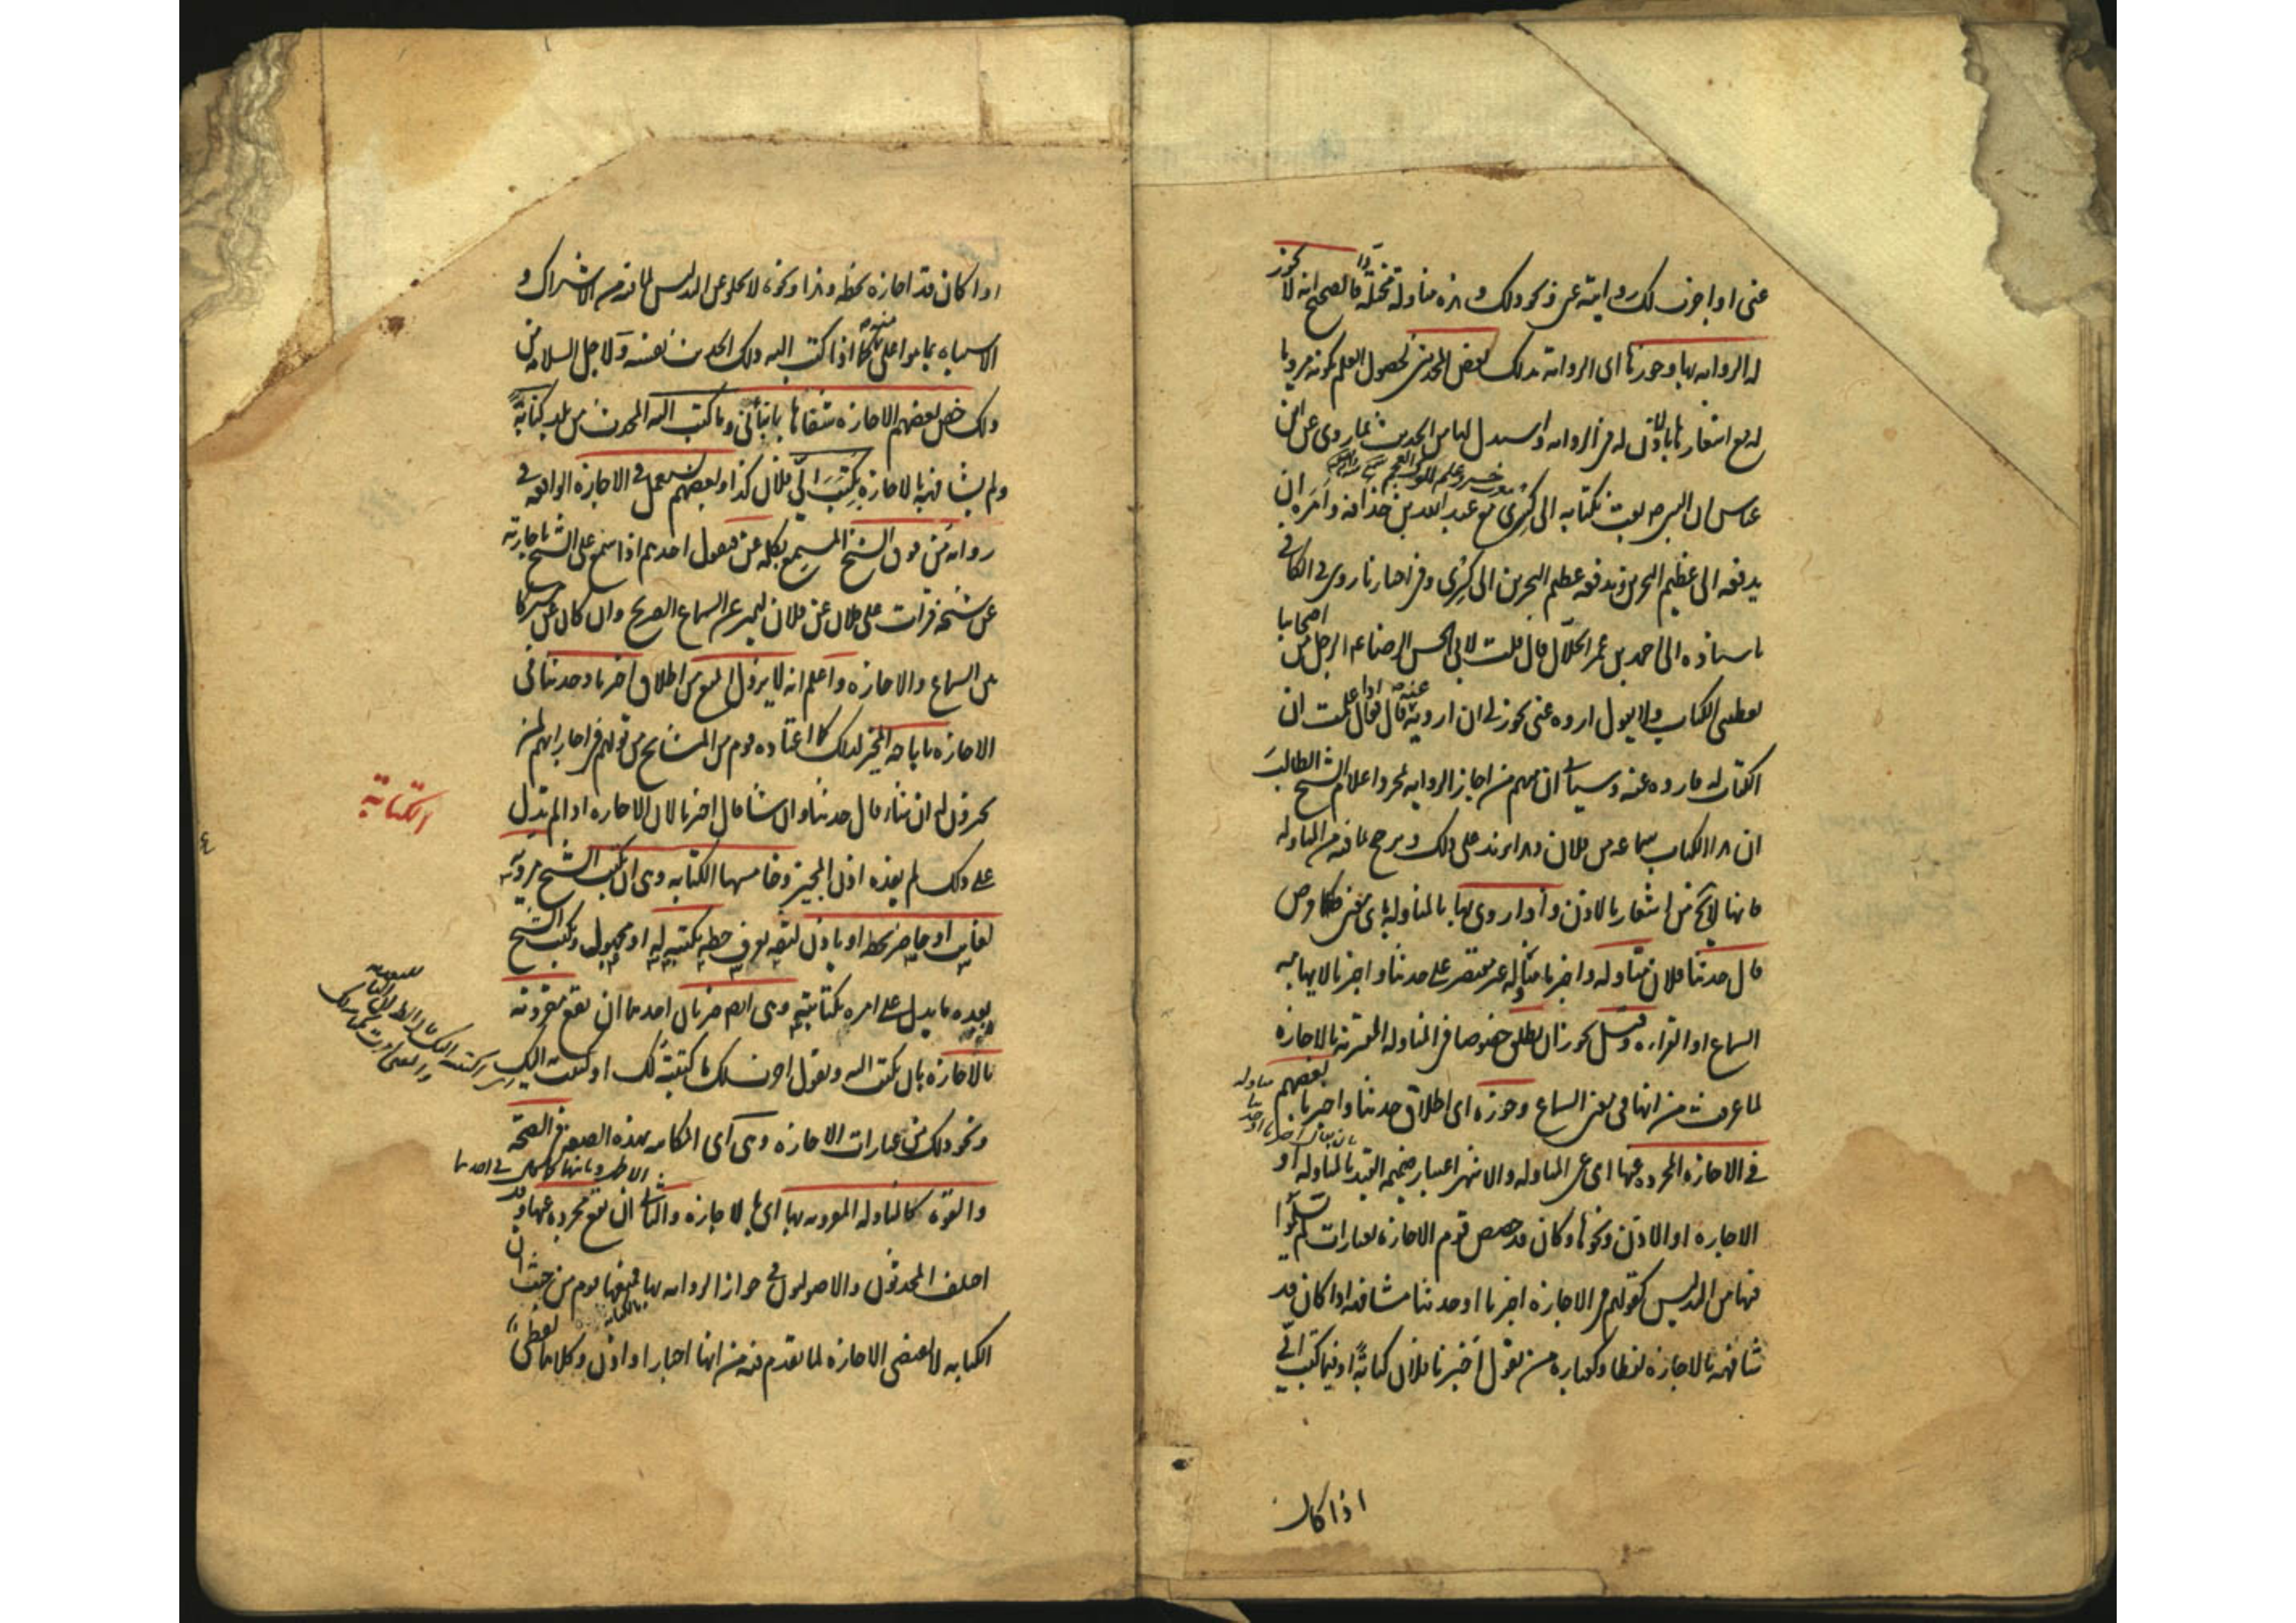 عنی او اجزت لک روایته عنی ونحو ذلک وهذه مناولة مختلة فالصحیح انه لا یجوز
له الروایة بها وجوزها ای الروایة بذلک بعض المحدثین لحصول العلم بکونه مرویا
له مع اشعارها بالاذن له فی الروایة واستدل لها من الحدیث بما روی عن ابن
عباس ان النبی ص بعث بکتابه الی کسری مع عبد الله بن حذافة وامره ان
یدفعه الی عظیم البحرین ویدفعه عظیم البحرین الی کسری وفی اخبارنا روی فی الکافی
باسناده الی احمد بن عمر الحلال قال قلت لابی الحسن الرضا ع الرجل من اصحابنا
یعطینی الکتاب ولا یقول اروه عنی یجوز لی ان ارویه عنه قال فقال اذا علمت ان
الکتاب له فاروه عنه وسیاتی ان منهم من اجاز الروایة بمجرد اعلام الشیخ الطالب
ان هذا الکتاب سماعه من فلان وهذا یزید علی ذلک ویرجح بما فیه من المناولة
فانها لا تخ من اشعار بالاذن واذا روی بها بالمناولة بای معنی
قال حدثنا فلان مناولة واخبرنا مناولة غیر مقتصر علی حدثنا واخبرنا لایهامه
السماع او القراءة وقیل یجوز ان یطلق خصوصا فی المناولة المقترنة بالاجازة
لما عرفت من انها فی معنی السماع وجوزه ای اطلاق حدثنا واخبرنا بعضهم
فی الاجازة المجردة عنها ای عن المناولة والاشهر اعتبار ضمیمة القید بالمناولة او
الاجازة او الاذن ونحوها وکان قد خصص قوم الاجازة بعبارات لم یسلموا
فیها من التدلیس کقولهم فی الاجازة اخبرنا او حدثنا مشافهة اذا کان قد
شافهه بالاجازة لفظا وکعبارة من یقول اخبرنا فلان کتابة او فیما کتب الی
اذا کان
اذا کان قد اجازه بخطه وهذا ونحوه لا یخلو عن التدلیس لما فیه من الاشتراک و
الاشتباه بما هو اعلی منه کما اذا کتب الیه ذلک الحدیث نفسه ولاجل السلامة من
ذلک خص بعضهم الاجازة شفاها بانبأنی وما کتب الیه المحدث من بلد کتابة
ولم یشافهه بالاجازة بکتب الی فلان کذا وبعضهم یستعمل فی الاجازة الواقعة فی
روایة من فوق الشیخ المسمع بکلمة عن فیقول احدهم اذا سمع علی الشیخ باجازته
عن شیخه قرأت علی فلان عن فلان لیتمیز عن السماع الصریح وان کان عن مشترکا
بین السماع والاجازة واعلم انه لا یزول المنع من اطلاق اخبرنا وحدثنا فی
الاجازة باباحة المجیز لذلک کما اعتاده قوم من المشایخ من قولهم فی اجازاتهم لمن
یجیزون له ان شاء قال حدثنا وان شاء قال اخبرنا لان الاجازة اذا لم تدل
علی ذلک لم یفده اذن المجیز وخامسها الکتابة وهی ان یکتب الشیخ مرویه
لغایب او حاضر بخطه او یاذن لثقة یعرف خطه یکتبه له او مجهول ویکتب الشیخ
بعده ما یدل علی امره بکتابته وهی ایضا ضربان احدهما ان تقع مقرونة
بالاجازة بان یکتب الیه ویقول اجزت لک ما کتبته لک او کتبت به الیک
ونحو ذلک من عبارات الاجازة وهی ای المکاتبة بهذه الصفة فی الصحة
والقوة کالمناولة المقرونة بها ای بالاجازة والثانی ان تقع مجردة عنها وقد
اختلف المحدثون والاصولیون فی جواز الروایة بها فمنعها قوم من حیث ان
الکتابة لا تقتضی الاجازة لما تقدم من انها اخبار او اذن وکلاهما لفظی
الکتابة